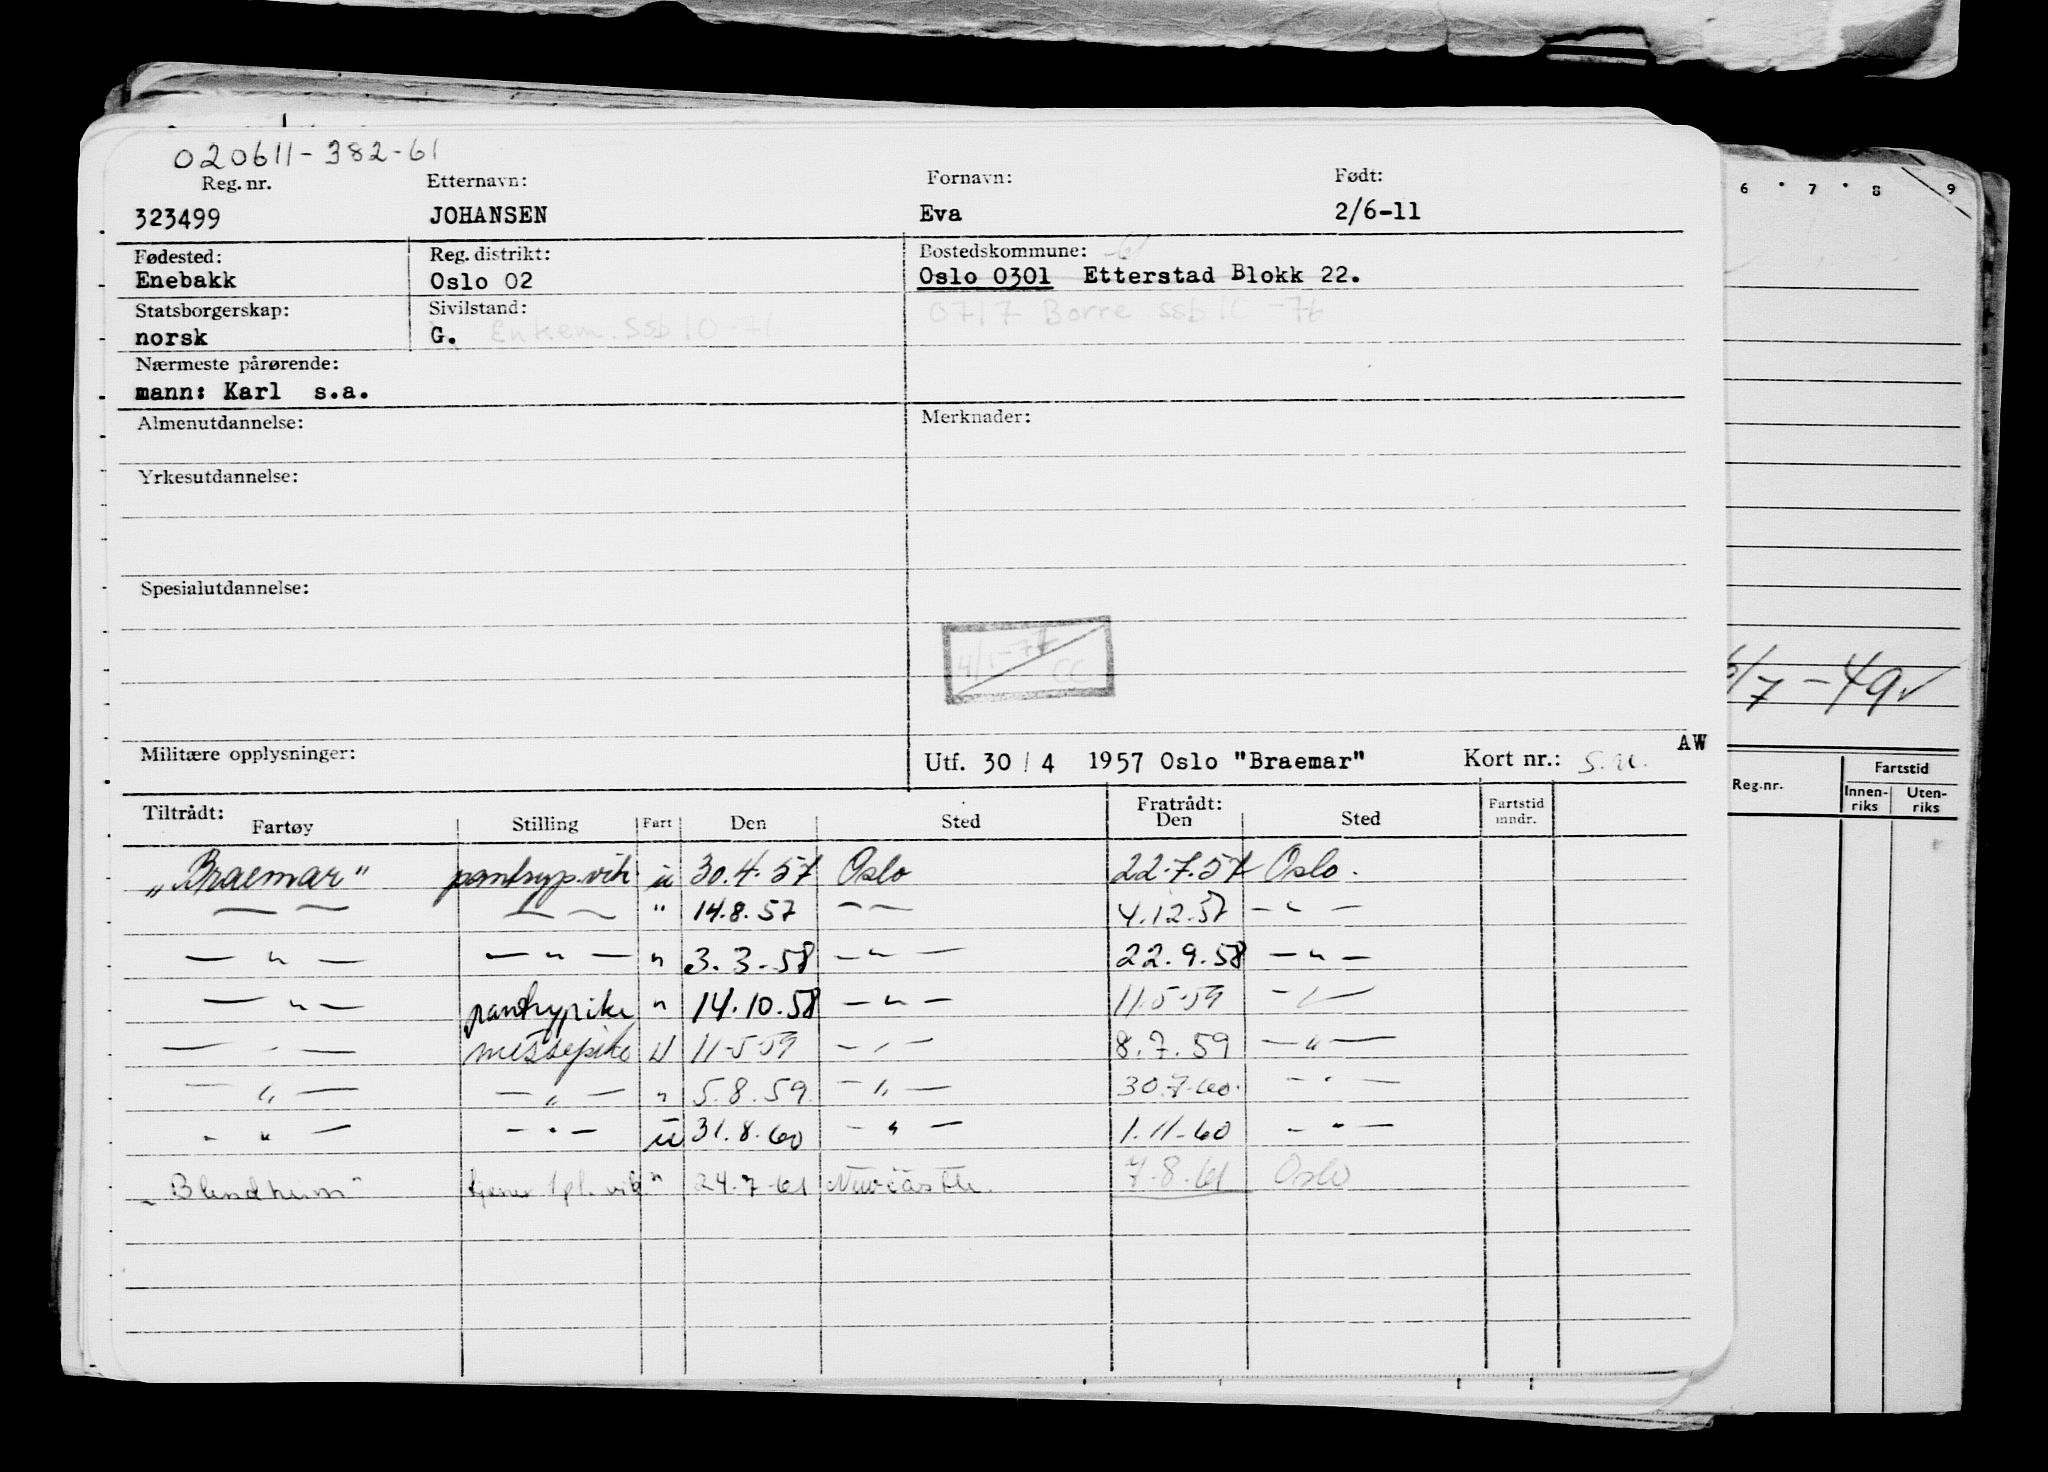 020611-382-61
Reg. nr. Etternavn: Fornavn: Født:
323499 JOHANSEN Eva 2/6-11
Fødested: Reg. distrikt: Bostedskommune: -61
Enebakk Oslo 02 Oslo 0301 Etterstad Blokk 22.
Statsborgerskap: Sivilstand: 0717 Borre ssb 10-76
norsk G. Enkem. Ssb 10-76
Nærmeste pårørende:
mann: Karl s.a.
Almenutdannelse: Merknader:
Yrkesutdannelse:
Spesialutdannelse:
4/1-77 CC
Militære opplysninger: Utf. 30/4 1957 Oslo "Braemar" Kort nr.: AW
Tiltrådt: Fratrådt:
Fartøy Stilling Fart Den Sted Den Sted Fartstid mndr.
„Braemar" pantryp.vik. u 30.4.57 Oslo 22.7.57 Oslo.
— — — — " 14.8.57 — — 4.12.57 — " —
— " — — " — " 3.3.58 — " — 22.9.58 — " —
— " — pantrypike " 14.10.58 — " — 11.5.59 — " —
— " — messepike U 11-5-59 — " — 8.7.59 — " —
— " — — " — " 5.8.59 — " — 30.7.60. — " —
— " — — " — u 31.8.60 — " — 1.11-60 — " —
„Blendheim" vik. " 24.7-61 Newcastle. 7.8.61 Oslo
6 7 8 9
/7 - 49 ✓
Reg.nr. Fartstid
Innen-riks Uten-riks